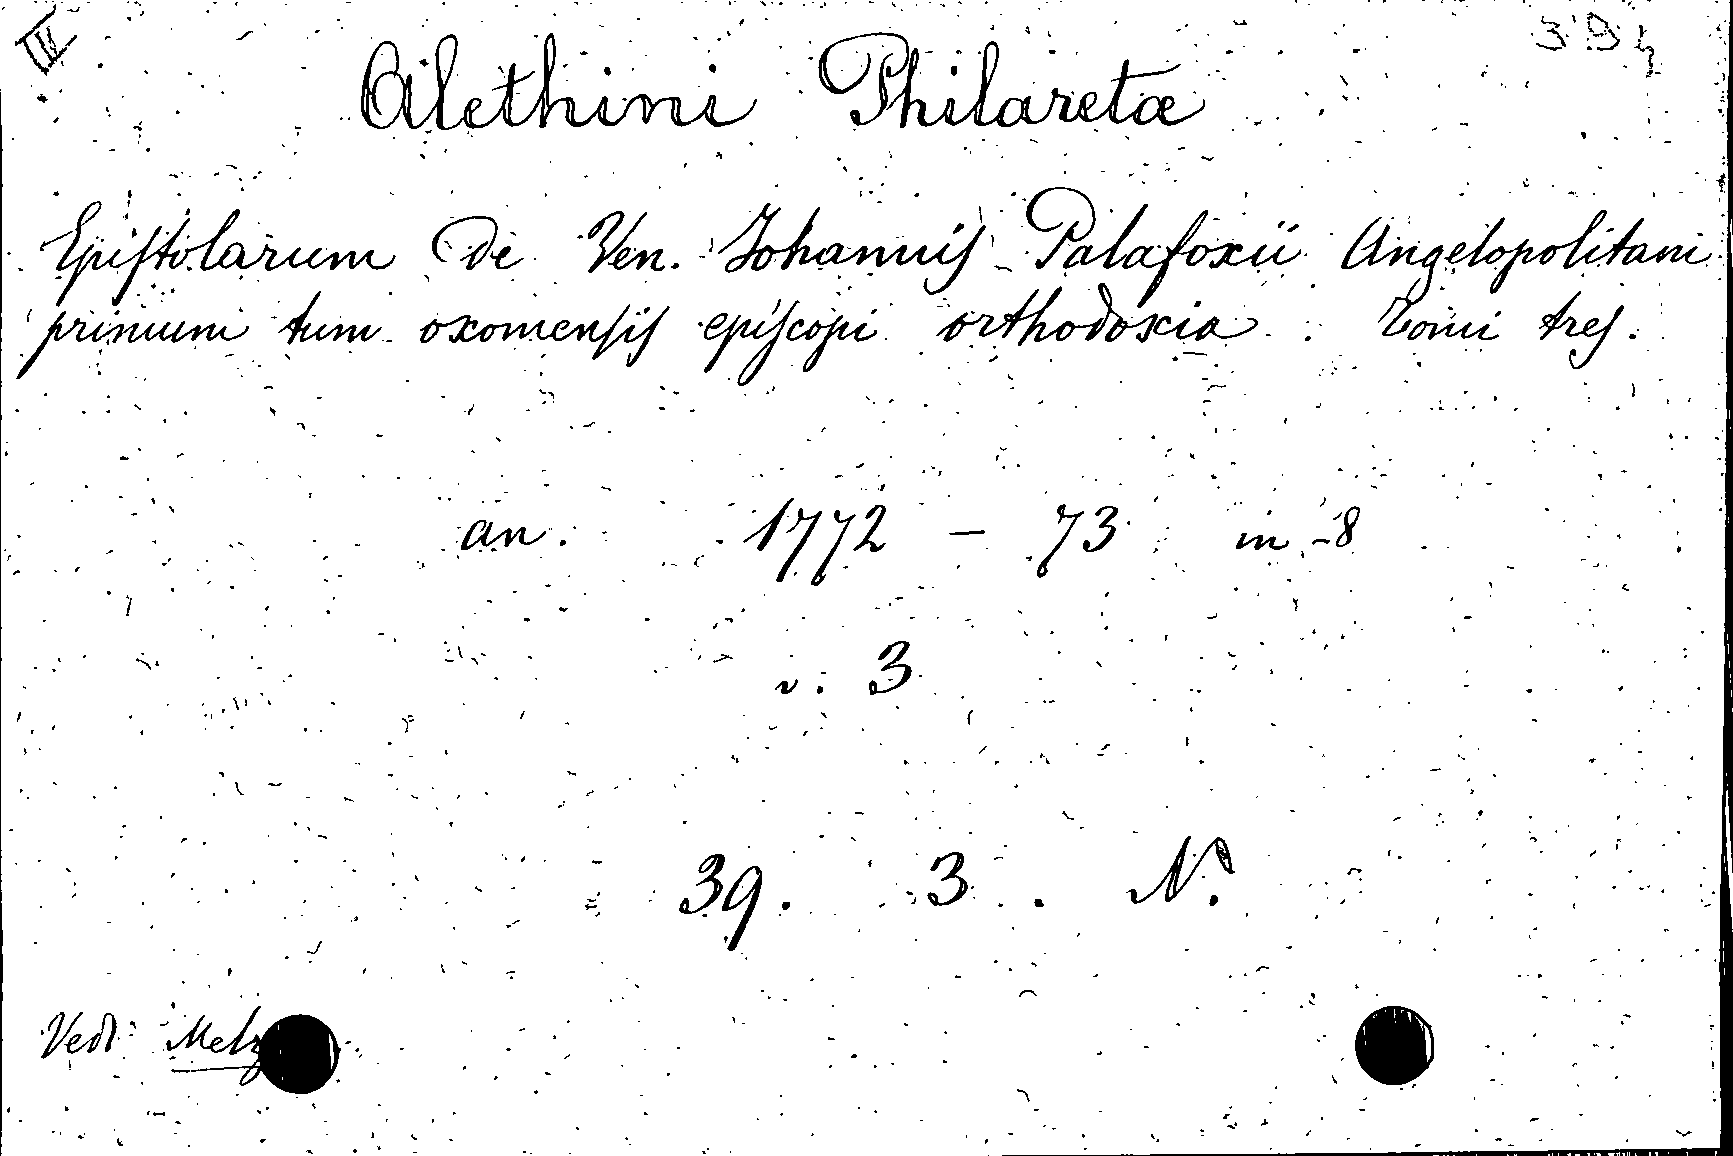 IV
Alethini Philaretæ
Epistolarum de Ven. Johannis Palafoxii Angelopolitani
primum tum oxomensis episcopi orthodoxia. Tomi tres.
an. 1772 – 73 in -8
v. 3
39. 3. N.
Vedi